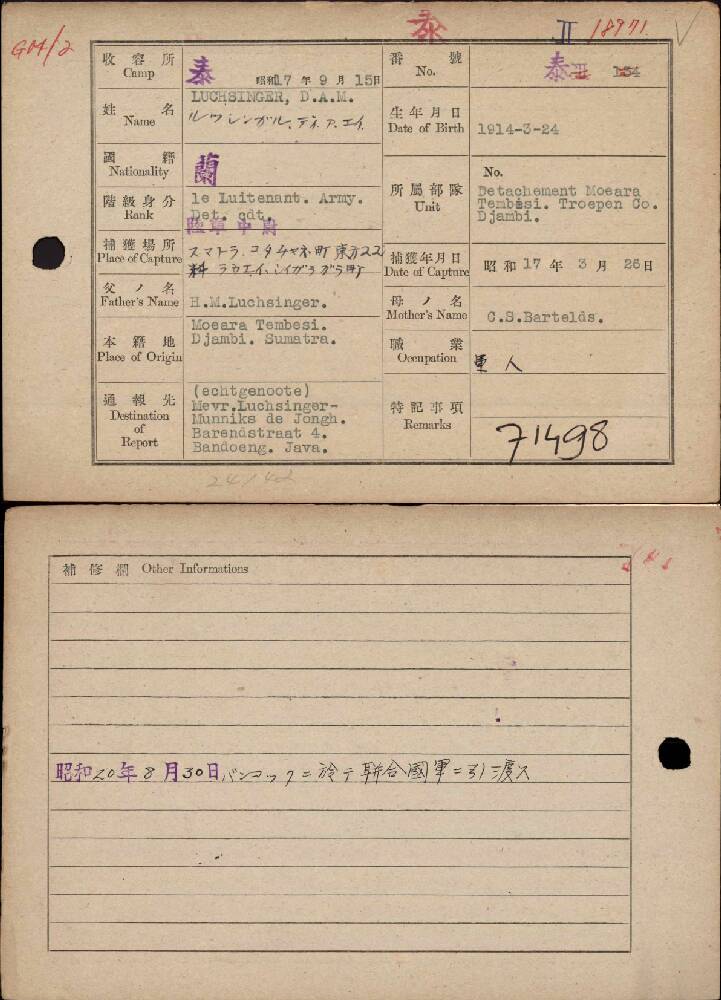 GOA/2
泰
II
18771
収容所
Camp
泰
昭和17年9月15日
番號
No.
泰 II 154
姓名
Name
LUCHSINGER, D.A.M.
ルクシンガル、デイ、ア、エイ
生年月日
Date of Birth
1914-3-24
國籍
Nationality
蘭
階級身分
Rank
1e Luitenant. Army.
Det. cdt.
陸軍中尉
所屬部隊
Unit
No.
Detachement Moeara
Tembesi. Troepen Co.
Djambi.
捕獲場所
Place of Capture
スマトラ、コタチャネ町東方22
料
捕獲年月日
Date of Capture
昭和17年3月26日
父ノ名
Father's Name
H.M.Luchsinger.
母ノ名
Mother's Name
C.S.Bartelds.
本籍地
Place of Origin
Moeara Tembesi.
Djambi. Sumatra.
職業
Occupation
軍人
通報先
Destination
of
Report
(echtgenoote)
Mevr.Luchsinger-
Munniks de Jongh.
Barendstraat 4.
Bandoeng. Java.
特記事項
Remarks
71498
24/42
補修欄 Other Informations
昭和20年8月30日バンコックニ於テ聯合國軍ニ引渡ス